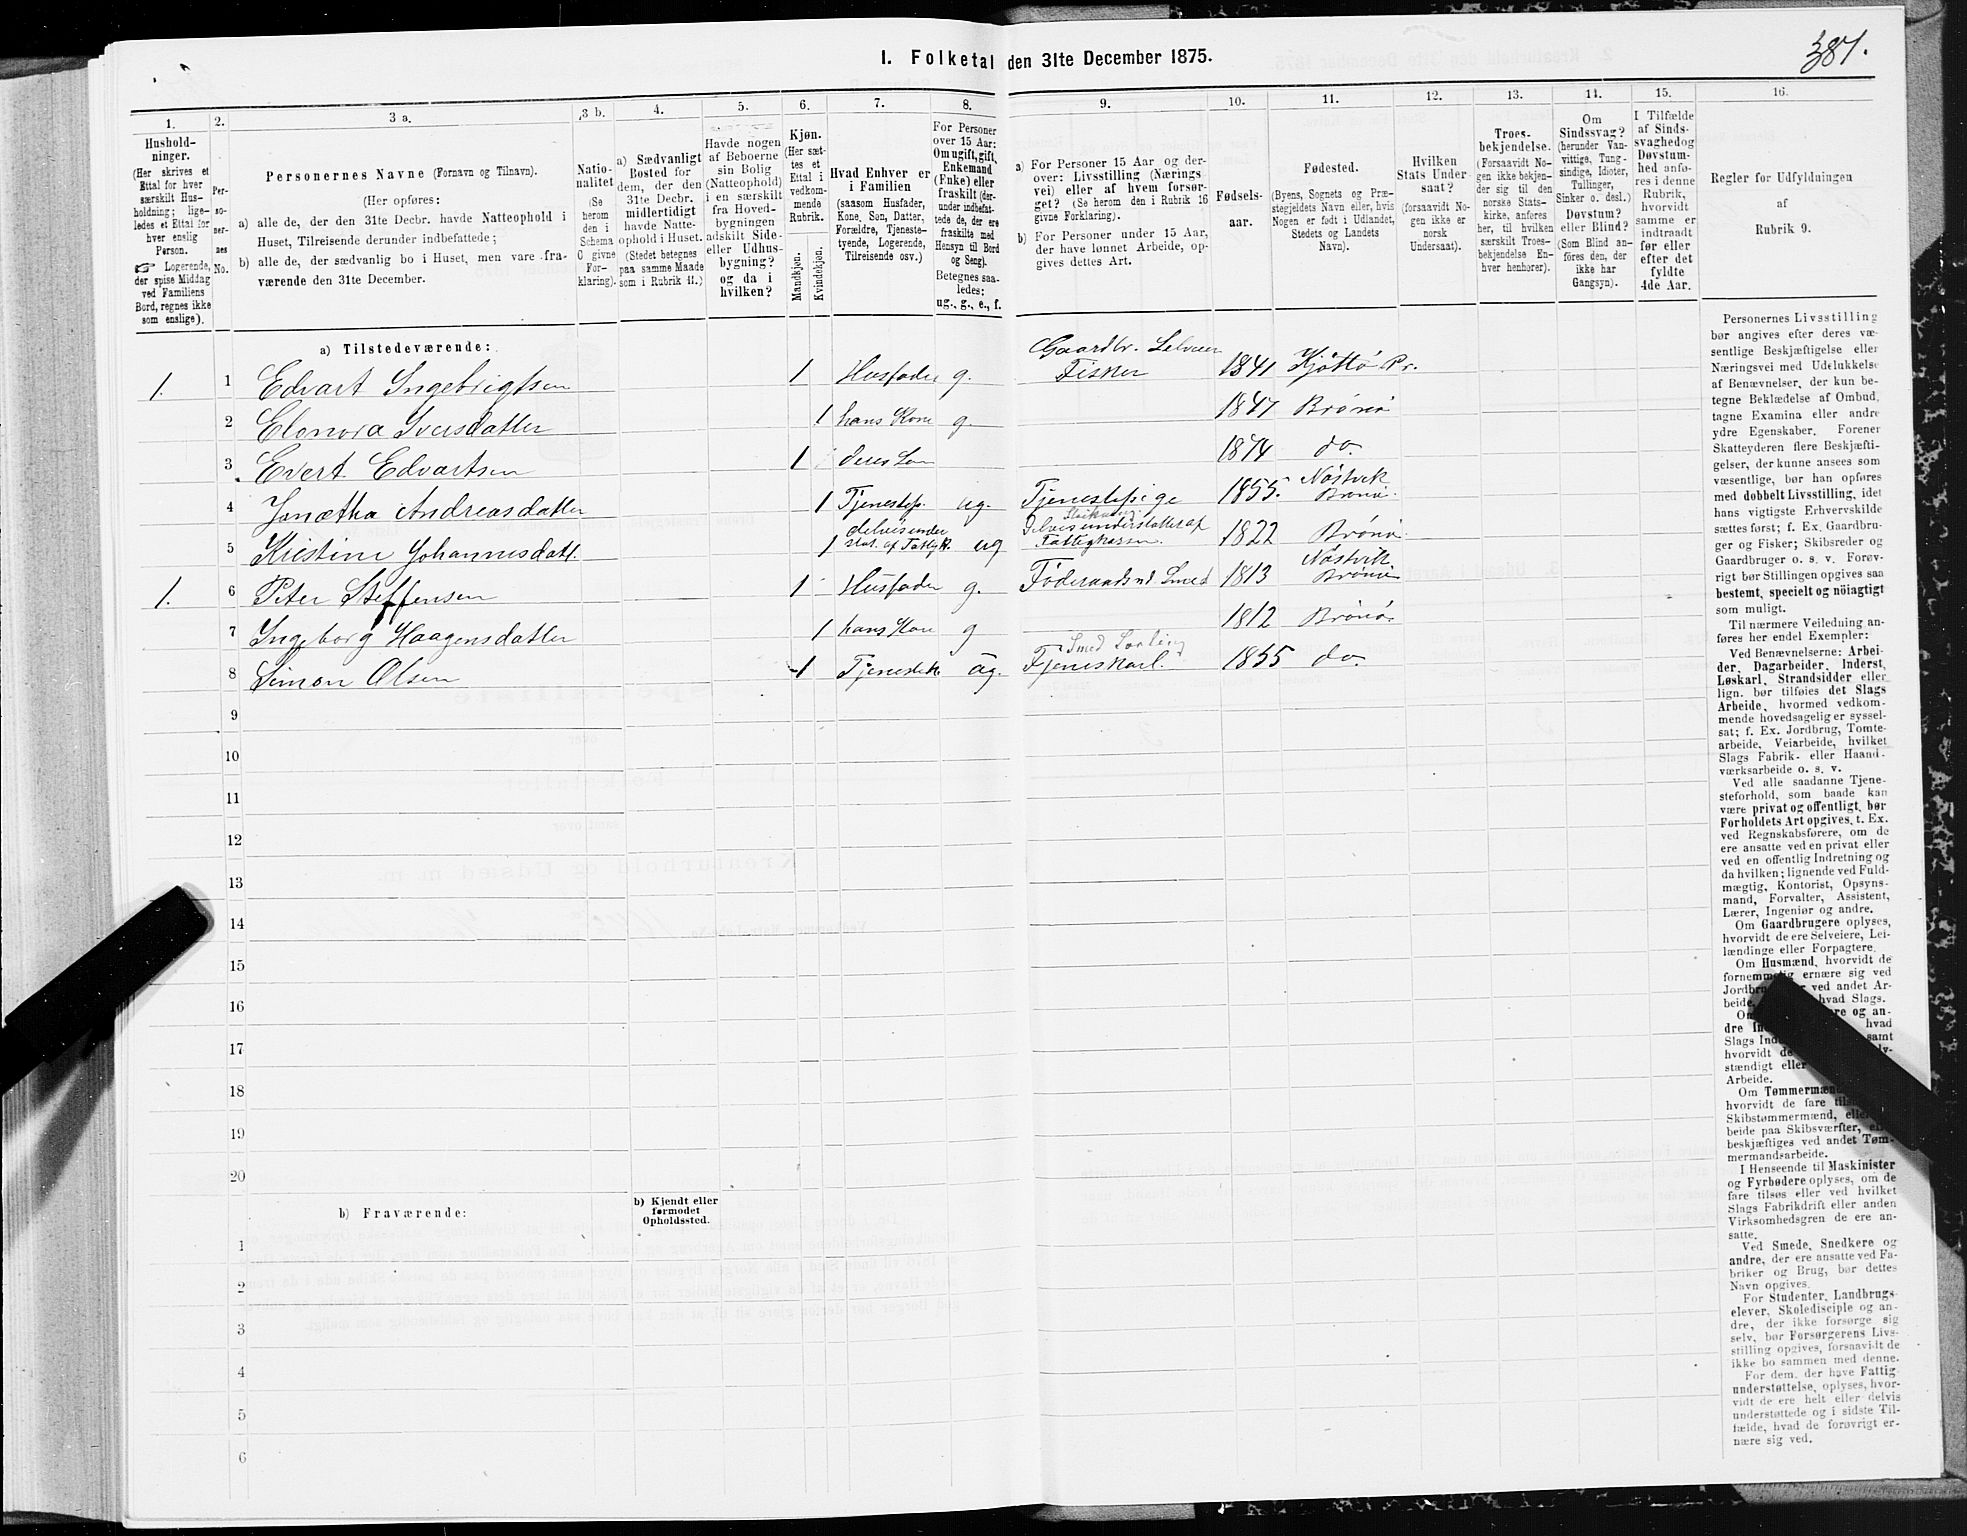 I. Folketal den 31te December 1875.
381.
1.
Hushold-
ninger.
(Her skrives et
Ettal for hver
særskilt Hus-
holdning; lige-
ledes et Ettal for
hver enslig
Person.
Logerende,
der spise Middag
ved Familiens
Bord, regnes ikke
som enslige).
2.
Per-
so-
ner-
nes
No.
3 a.
Personernes Navne (Fornavn og Tilnavn).
(Her opføres:
a) alle de, der den 31te Decbr. havde Natteophold i
Huset, Tilreisende derunder indbefattede;
b) alle de, der sædvanlig bo i Huset, men vare fra-
værende den 31te December.
3 b.
Natio-
nalitet
(Se
herom
den i
Schema
C givne
For-
klaring).
4.
a) Sædvanligt
Bosted for
dem, der den
31te Decbr.
midlertidigt
havde Natte-
ophold i Huset.
(Stedet betegnes
paa samme Maade
som i Rubrik 11.)
5.
Havde nogen
af Beboerne
sin Bolig
(Natteophold)
i en særskilt
fra Hoved-
bygningen
adskilt Side-
eller Udhus-
bygning?
og da i
hvilken?
6.
Kjøn.
(Her sæt-
tes et
Ettal i
vedkom-
mende
Rubrik.
Mandkjøn.
Kvindekjøn.
7.
Hvad Enhver er
i Familien
(saasom Husfader,
Kone, Søn, Datter,
Forældre, Tjeneste-
tyende, Logerende,
Tilreisende osv.)
8.
For Personer
over 15 Aar:
Om ugift, gift,
Enkemand
(Enke) eller
fraskilt (der-
under indbefat-
tede de, der ere
fraskilte med
Hensyn til Bord
og Seng).
Betegnes saa-
ledes:
ug., g., e., f.
9.
a) For Personer 15 Aar og der-
over: Livsstilling (Nærings-
vei) eller af hvem forsør-
get? (Se herom den i Rubrik 16
givne Forklaring).
b) For Personer under 15 Aar,
der have lønnet Arbeide, op-
gives dettes Art.
10.
Fødsels-
aar.
11.
Fødested.
(Byens, Sognets og Præ-
stegjeldets Navn eller, hvis
Nogen er født i Udlandet,
Stedets og Landets
Navn).
12.
Hvilken
Stats Under-
saat?
(forsaavidt No-
gen ikke er
norsk
Undersaat).
13.
Troes-
bekjendelse.
(Forsaavidt No-
gen ikke bekjen-
der sig til den
norske Stats-
kirke, anføres
her, til hvilken
særskilt Troes-
bekjendelse En-
hver henhører).
14.
Om
Sindssvag?
(herunder Van-
vittige, Tung-
sindige, Idioter,
Tullinger,
Sinker o. desl.)
Døvstum?
eller Blind?
(Som Blind an-
føres den, der
ikke har
Gangsyn).
15.
I Tilfælde
af Sinds-
svaghed og
Døvstum-
hed anfø-
res i denne
Rubrik,
hvorvidt
samme er
indtraadt
før eller
efter det
fyldte
4de Aar.
16.
Regler for Udfyldningen
af
Rubrik 9.
a) Tilstedeværende:
1. 1 Edvart Ingebrigtsen 1 Husfader g. Gaardbr. Selveier Fisker 1841 Kjøttø Pr.
2 Elonora Iversdatter 1 hans Kone g. 1847 Brønø
3 Evert Edvartsen 1 deres Søn 1874 do.
4 Jonætha Andreasdatter 1 Tjenestep. ug. Tjenestepige 1855. Nøstvik Brønø.
5 Kristine Johannesdatt. 1 delvis under støt. af Fattigk. ug Delvis understøttet af Fattigkassen. 1822 Brønø
1. 6 Peter Steffensen 1 Husfader g. Føderaadsmd Smed 1813 Nøstvik Brønø
7 Ingeborg Haagensdatter 1 hans Kone g 1812 Brønø
8 Simon Olsen 1 Tjenestek. ug. Smed Lærling Tjenestkarl. 1855 do.
9
10
11
12
13
14
15
16
17
18
19
20
b) Fraværende:
b) Kjendt eller
formodet
Opholdssted.
1
2
3
4
5
6
Personernes Livsstilling
bør angives efter deres væ-
sentlige Beskjæftigelse eller
Næringsvei med Udelukkelse
af Benævnelser, der kun be-
tegne Beklædelse af Ombud,
tagne Examina eller andre
ydre Egenskaber. Forener
Skatteyderen flere Beskjæfti-
gelser, der kunne ansees som
væsentlige, bør han opføres
med dobbelt Livsstilling, idet
hans vigtigste Erhvervskilde
sættes først; f. Ex. Gaardbru-
ger og Fisker; Skibsreder og
Gaardbruger o. s. v. Forøv-
rigt bør Stillingen opgives saa
bestemt, specielt og nöiagtigt
som muligt.
Til nærmere Veiledning an-
føres her endel Exempler:
Ved Benævnelserne: Arbei-
der, Dagarbeider, Inderst,
Løskarl, Strandsidder eller
lign. bør tilføies det Slags
Arbeide, hvormed vedkom-
mende hovedsagelig er syssel-
sat; f. Ex. Jordbrug, Tomte-
arbeide, Veiarbeide, hvilket
Slags Fabrik- eller Haand-
værksarbeide o. s. v.
Ved alle saadanne Tjene-
steforhold, som baade kan
være privat og offentligt, bør
Forholdets Art opgives, t. Ex.
ved Regnskabsførere, om de
ere ansatte ved en privat eller
ved en offentlig Indretning og
da hvilken; lignende ved Fuld-
mægtig, Kontorist, Opsyns-
mand, Forvalter, Assistent,
Lærer, Ingeniør og andre.
Om Gaardbrugere oplyses,
hvorvidt de ere Selveiere, Lei-
lændinge eller Forpagtere.
Om Husmænd, hvorvidt de
fornemmelig ernære sig ved
Jordbr ved andet Ar-
beide, hvad Slags.
Om re og an-
dre In hvad
Slags Ind samt
hvorvidt de ly-
stændigt eller
Arbeide.
Om Tømmermænd
hvorvidt de fare tils
Skibstømmermænd, elle
beide paa Skibsværfter,
beskjæftiges ved andet Tøm-
mermandsarbeide.
I Henseende til Maskinister
og Fyrbødere oplyses, om de
fare tilsøs eller ved hvilket
Slags Fabrikdrift eller anden
Virksomhedsgren de ere an-
satte.
Ved Smede, Snedkere og
andre, der ere ansatte ved Fa-
briker og Brug, bør dettes
Navn opgives.
For Studenter, Landbrugs-
elever, Skoledisciple og an-
dre, der ikke forsørge sig
selv, bør Forsørgerens Livs-
stilling opgives, forsaavidt de
ikke bo sammen med denne.
For dem, der have Fattig-
understøttelse, oplyses, hvor-
vidt de ere helt eller delvis
understøttede og i sidste Til-
fælde, hvad de forøvrigt er-
nære sig ved.